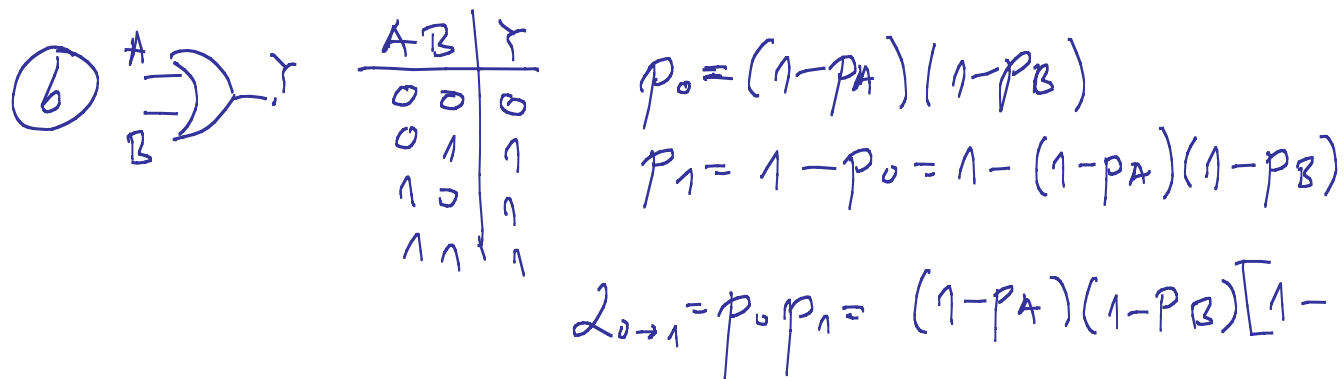 6
A
B
Y
A B Y
0 0 0
0 1 1
1 0 1
1 1 1
p₀ = (1-p_A)(1-p_B)
p₁ = 1 - p₀ = 1 - (1-p_A)(1-p_B)
α₀→₁ = p₀ p₁ = (1-p_A)(1-p_B)[1-